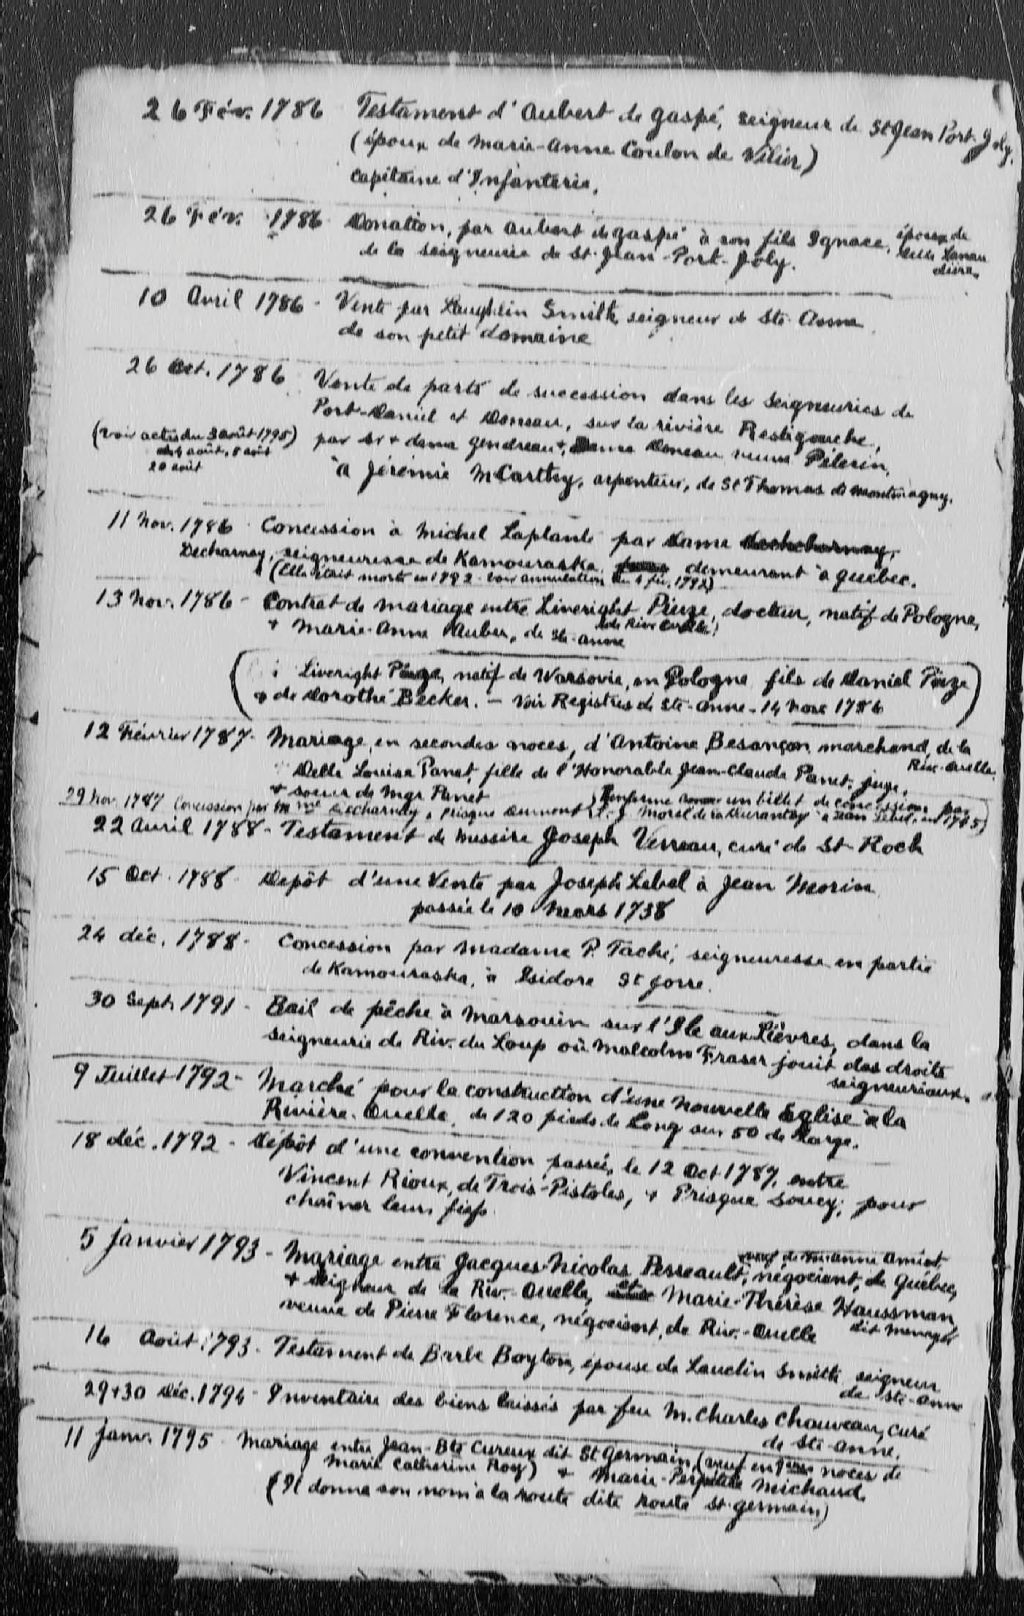 26 Fév. 1786 Testament d'Aubert de Gaspé, seigneur de St Jean Port-Joly.
(époux de Marie-Anne Coulon de Vilier)
Capitaine d'Infanterie.
26 Fév. 1786 Donation, par Aubert de Gaspé à son fils Ignace, époux de
Delle Lanau
dière
de la seigneurie de St-Jean-Port-Joly.
10 Avril 1786 - Vente par Laughlin Smith, seigneur de Ste Anne
de son petit domaine
26 Oct. 1786 Vente de parts de succession dans les seigneuries de
Port-Daniel et Doneau, sur la rivière Restigouche,
(Voir actes du 3 août 1795) par Sr + dame Gendreau +, Dame Doneau veuve Pélerin,
20 août
à Jérémie McCarthy, arpenteur, de St Thomas de Montmagny.
11 Nov. 1786 - Concession à Michel Laplante par Dame
Decharnay, seigneuresse de Kamouraska, demeurant à Québec.
(Elle était morte en 1792 - voir annulation du 4 fév. 1792)
13 Nov. 1786 - Contrat de mariage entre Liveright Piuze, docteur, natif de Pologne,
(de Riv. Ouelle)
+ Marie-Anne Aubu, de Ste-Anne
( Liveright Piuze, natif de Warsovie, en Pologne fils de Daniel Piuze
+ de Dorothé Becker. - Voir Registres de Ste-Anne - 14 nove 1786 )
12 Février 1787 - Mariage, en secondes noces, d'Antoine Besançon, marchand, de la
Riv.-Ouelle,
Delle Louise Panet, fille de l'Honorable Jean-Claude Panet, juge,
+ soeur de Mgr Panet
29 Nov. 1787 Concession par Mme Decharnay, à Prisque Dumont (Renferme un billet de concession par
J. Morel de la Durantay à Jean Lebel, en 1745)
22 Avril 1788 - Testament de Messire Joseph Verreau, curé de St-Roch
15 Oct. 1788 - Depôt d'une Vente par Joseph Lebel à Jean Morin
passée le 10 Mars 1738
24 déc. 1788 - Concession par Madame P. Taché, seigneuresse en partie
de Kamouraska, à Isidore St Jorre.
30 Sept. 1791 - Bail de pêche à marsouin sur l'Ile aux Lièvres, dans la
seigneurie de Riv. du Loup où Malcolm Fraser jouit des droits
seigneuriaux.
9 Juillet 1792 - Marché pour la construction d'une nouvelle Eglise à la
Rivière-Ouelle, de 120 pieds de Long sur 50 de Large.
18 déc. 1792 - Dépôt d'une convention passée, le 12 Oct 1787, entre
Vincent Rioux, de Trois-Pistoles, + Prisque Soucy, pour
chaîner leurs fiefs.
5 janvier 1793 - Mariage entre Jacques-Nicolas Perreault, négociant, de Québec,
veuf de M. Anne Amiot
+ seigneur de la Riv.-Ouelle, Marie-Thérèse Haussman,
dit Menager
veuve de Pierre Florence, négociant, de Riv.-Ouelle
16 Août 1793 - Testament de Barbe Boyton, épouse de Lauclin Smith, seigneur
de Ste-Anne
29+30 Déc. 1794 - Inventaire des biens laissés par feu M. Charles Chauveau, curé
de Ste-Anne.
11 janv. 1795 - Mariage entre Jean-Bte Cureux dit St Germain, (veuf en 1ères noces de
Marie Catherine Roy) + Marie-Perpétue Michaud.
(Il donna son nom à la Route dite Route St-Germain)